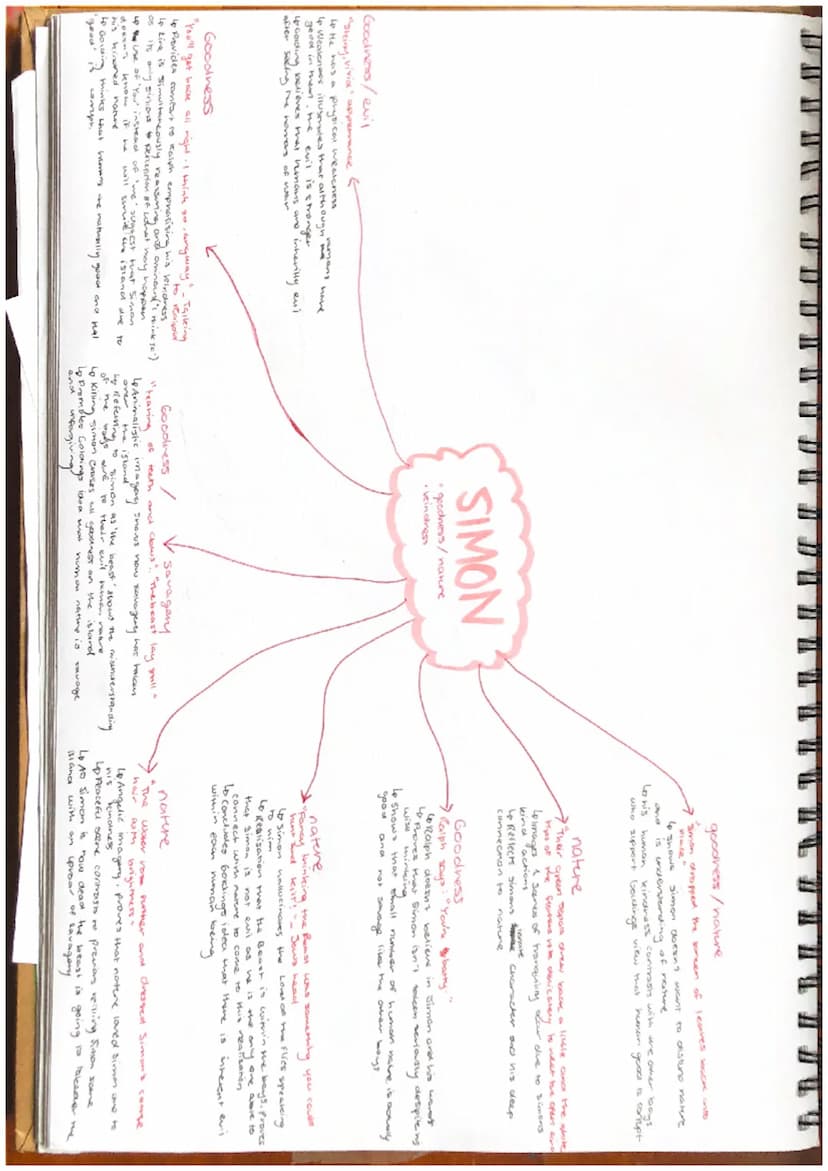 SIMON
- goodness / nature
- kindness
Goodness / evil
"skinny, vivid" appearance
↳ He has a physical weakness
↳ Weakness illustrates that although humans have
good in them, the evil is stronger
↳ Golding believes that humans are inheritly evil
after seeing the horrors of war
Goodness
"You'll get back all right. I think so, anyway" - Talking
to Ralph
↳ Provides comfort to Ralph emphasising his kindness
↳ Line is simultaneously reassuring and ominous ('I think so')
as its only Simons perception of what may happen
↳ Use of 'You' instead of 'we' suggest that Simon
doesn't know if he will survive the island due to
his kindred nature
↳ Golding thinks that humans are naturally good and that
'good' is corrupt.
Goodness / savagery
"tearing of teeth and claws". "The beast lay still"
↳ Animalistic imagery shows how savagery has taken
over the island
↳ Referring to Simon as 'the beast' shows the misunderstanding
of the boys due to their evil human nature
↳ Killing Simon erases all goodness on the island
↳ Promotes Goldings idea that human nature is savage
and unforgiving
nature
"The water rose further and dressed Simon's coarse
hair with brightness"
↳ Angelic imagery, proves that nature loved Simon due to
his kindness
↳ Peaceful scene contrasts to previous killing Simon scene
↳ As Simon is now dead the beast is going to takeover the
island with an uproar of savagery
nature
"Fancy thinking the Beast was something you could
hunt and kill!" - Sow's head
↳ Simon hallucinates the Lord of the Flies speaking
to him
↳ Realisation that the Beast is within the boys. Proves
that Simon is not evil as he is the only one able to
connect with nature to come to this realisation
↳ Concludes Goldings idea that there is inherent evil
within each human being
Goodness
Ralph says: "You're batty"
↳ Ralph doesn't believe in Simon and his
wise thinking
↳ Proves that Simon isn't taken seriously despite his
↳ Shows that small number of human nature is
good and not savage like the other boys
nature
"Their green sepals drew back a little and the white
tips of the flowers rose delicately to meet the open air"
↳ Images & sense of tranquility occur due to Simons
kind actions
↳ Reflects Simons innate character and his deep
connection to nature
goodness / nature
"Simon dropped the screen of leaves back into
place"
↳ Shows Simon doesn't want to disturb nature
and is understanding of nature
↳ His human kindness contrasts with the other boys
who support Goldings view that human good is corrupt